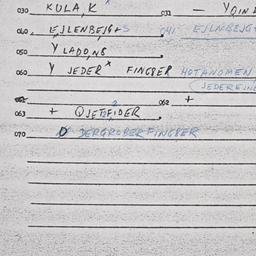 030 KULA,K 033 — YOIN
040 EJLENBEJG+S 041 EJLNBEJG
050 Y LADD,NS
060 Y JEDER* FINGBER HOTANOMEN
(JEDEREIN
062 +
063 + QJETFIDER
070 DERGROBERFINGBER